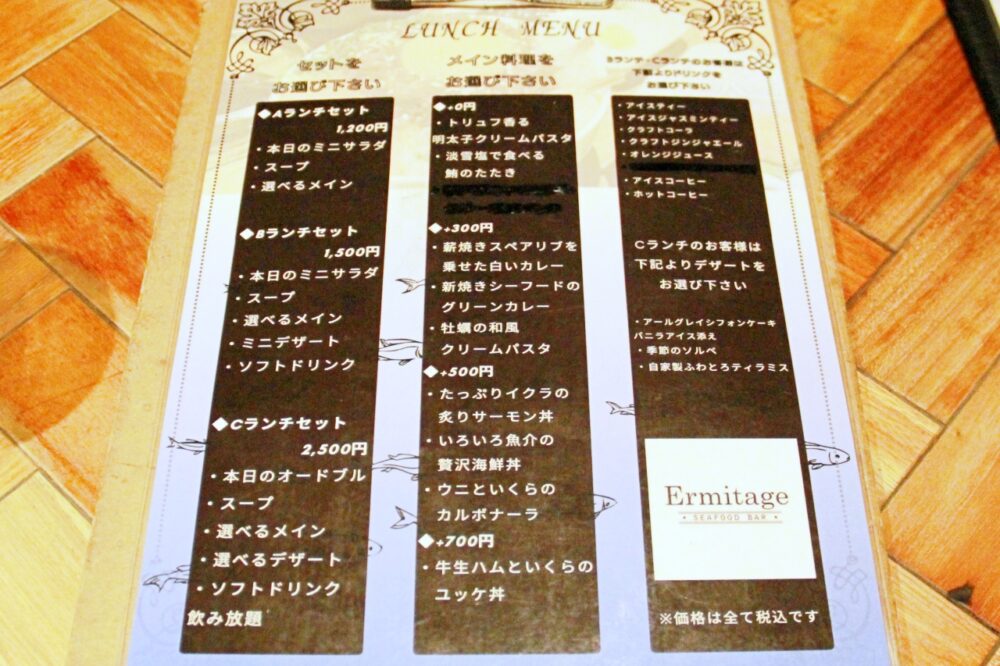 LUNCH MENU
セットを
お選び下さい
◆Aランチセット
1,200円
・本日のミニサラダ
・スープ
・選べるメイン
◆Bランチセット
1,500円
・本日のミニサラダ
・スープ
・選べるメイン
・ミニデザート
・ソフトドリンク
◆Cランチセット
2,500円
・本日のオードブル
・スープ
・選べるメイン
・選べるデザート
・ソフトドリンク
飲み放題
メイン料理を
お選び下さい
◆+0円
・トリュフ香る
明太子クリームパスタ
・淡雪塩で食べる
鮪のたたき
◆+300円
・薪焼きスペアリブを
乗せた白いカレー
・新焼きシーフードの
グリーンカレー
・牡蠣の和風
クリームパスタ
◆+500円
・たっぷりイクラの
炙りサーモン丼
・いろいろ魚介の
贅沢海鮮丼
・ウニといくらの
カルボナーラ
◆+700円
・牛生ハムといくらの
ユッケ丼
Bランチ・Cランチのお客様は
下記よりドリンクを
お選び下さい
・アイスティー
・アイスジャスミンティー
・クラフトコーラ
・クラフトジンジャエール
・オレンジジュース
・アイスコーヒー
・ホットコーヒー
Cランチのお客様は
下記よりデザートを
お選び下さい
・アールグレイシフォンケーキ
バニラアイス添え
・季節のソルベ
・自家製ふわとろティラミス
Ermitage
• SEAFOOD BAR •
※価格は全て税込です